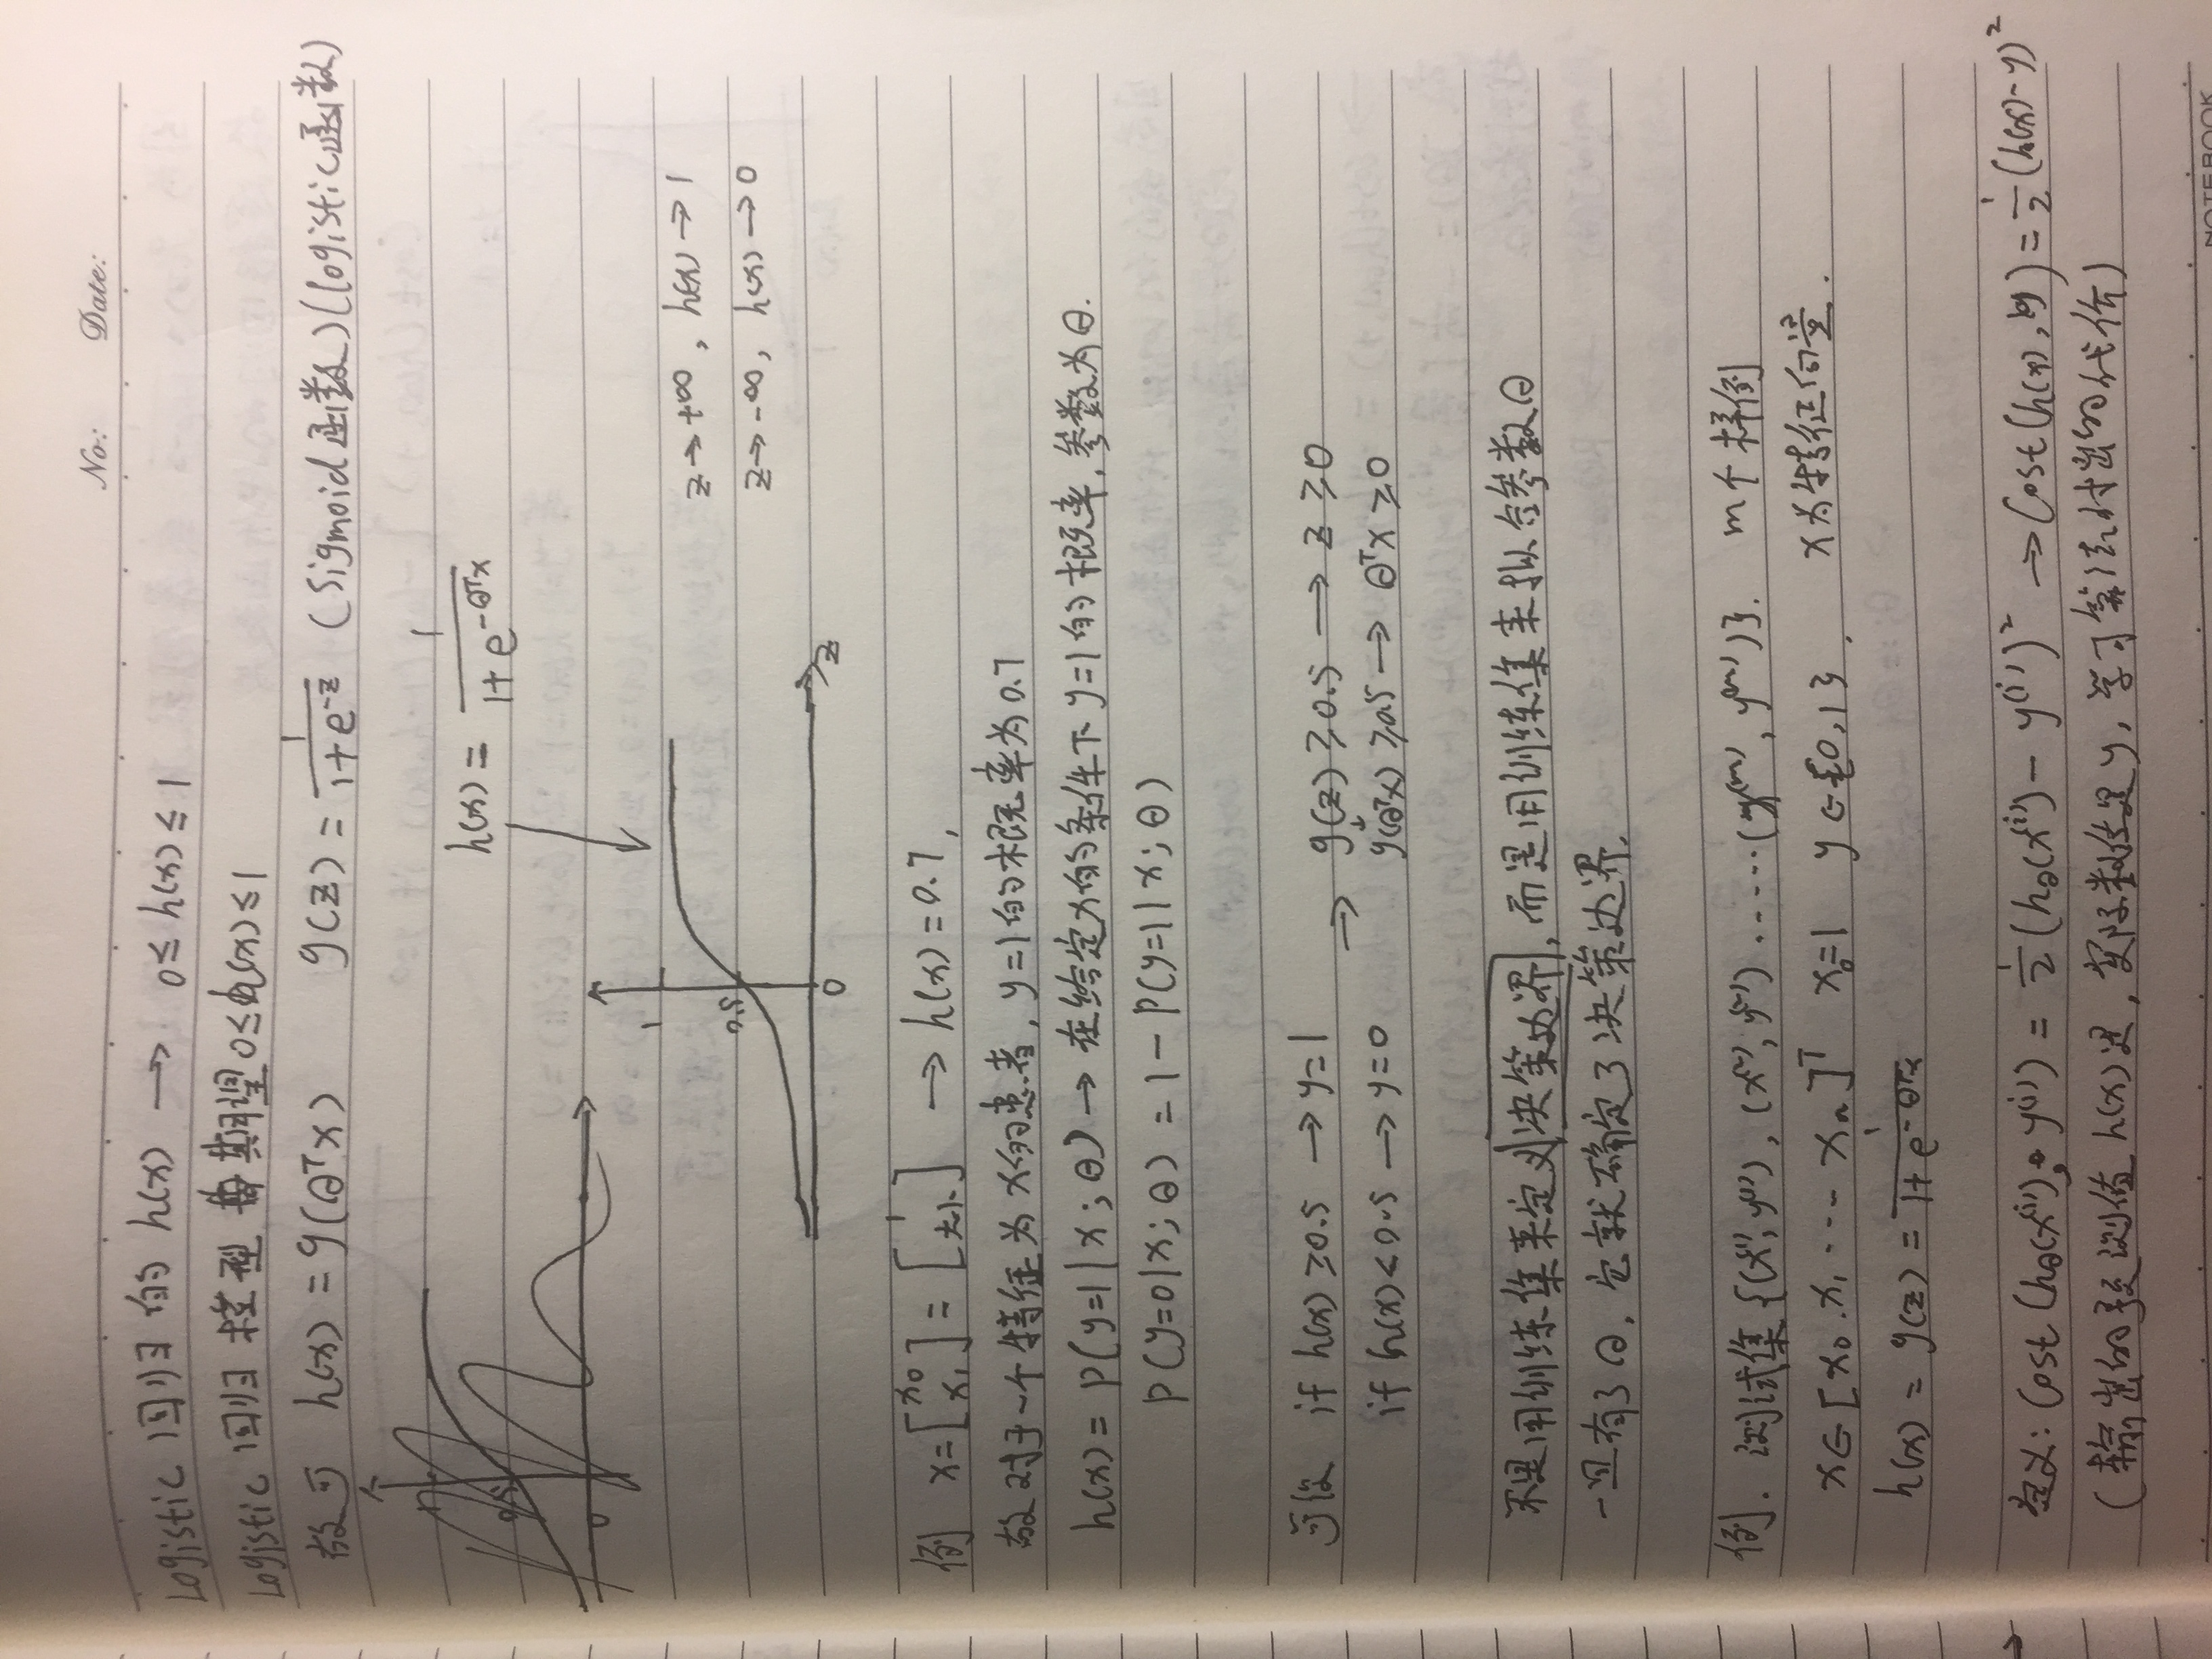 No: Date:
Logistic 回归 的 h(x) → 0≤ h(x) ≤ 1
Logistic 回归 模型 期望 0≤h(x)≤1
故可 h(x) = g(θᵀx) g(z) = 1/(1+e^(-z)) (Sigmoid函数)(logistic函数)
1
0.5
0
h(x) = 1/(1+e^(-θᵀx))
1
0.5
0 z
z→+∞, h(x)→1
z→-∞, h(x)→0
例 x=[x₀ x₁] = [1 大小] → h(x)=0.7,
故对于一个特征为x的患者, y=1的概率为0.7
h(x) = P(y=1|x;θ) → 在给定x的条件下y=1的概率,参数为θ.
P(y=0|x;θ) = 1-P(y=1|x;θ)
可设 if h(x)≥0.5 → y=1 → g(z)≥0.5 → z≥0
if h(x)<0.5 → y=0 g(θᵀx)≥0.5 → θᵀx≥0
不是用训练集来定义决策边界,而是用训练集来拟合参数θ
一旦有了θ,它就确定了决策边界.
例. 测试集{(x⁽¹⁾,y⁽¹⁾), (x⁽²⁾,y⁽²⁾)······(x⁽ᵐ⁾,y⁽ᵐ⁾)}. m个样例
x∈[x₀.x₁ ···· xₙ]ᵀ x₀=1 y∈{0,1}. x为特征向量.
h(x) = g(z) = 1/(1+e^(-θᵀx))
定义: Cost(h_θ(x⁽ⁱ⁾), y⁽ⁱ⁾) = 1/2 (h_θ(x⁽ⁱ⁾) - y⁽ⁱ⁾)² → Cost(h(x), y) = 1/2 (h(x)-y)²
(输出的预测值 h(x)是,实际数值是y,学习算法付出的代价)
NOTEBOOK